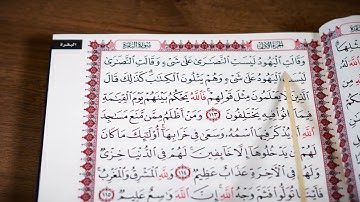 البقرة
سورة البقرة
الجزء الأول
وَقَالَتِ ٱلۡيَهُودُ لَيۡسَتِ ٱلنَّصَٰرَىٰ عَلَىٰ شَيۡءٖ وَقَالَتِ ٱلنَّصَٰرَىٰ
لَيۡسَتِ ٱلۡيَهُودُ عَلَىٰ شَيۡءٖ وَهُمۡ يَتۡلُونَ ٱلۡكِتَٰبَۗ كَذَٰلِكَ قَالَ
ٱلَّذِينَ لَا يَعۡلَمُونَ مِثۡلَ قَوۡلِهِمۡۚ فَٱللَّهُ يَحۡكُمُ بَيۡنَهُمۡ يَوۡمَ ٱلۡقِيَٰمَةِ
فِيمَا كَانُواْ فِيهِ يَخۡتَلِفُونَ ١١٣ وَمَنۡ أَظۡلَمُ مِمَّن مَّنَعَ مَسَٰجِدَ
ٱللَّهِ أَن يُذۡكَرَ فِيهَا ٱسۡمُهُۥ وَسَعَىٰ فِي خَرَابِهَآۚ أُوْلَٰٓئِكَ مَا كَانَ
لَهُمۡ أَن يَدۡخُلُوهَآ إِلَّا خَآئِفِينَۚ لَهُمۡ فِي ٱلدُّنۡيَا خِزۡيٞ
وَلَهُمۡ فِي ٱلۡأٓخِرَةِ عَذَابٌ عَظِيمٞ ١١٤ وَلِلَّهِ ٱلۡمَشۡرِقُ وَٱلۡمَغۡرِبُۚ
فَأَيۡنَمَا تُوَلُّواْ فَثَمَّ وَجۡهُ ٱللَّهِۚ إِنَّ ٱللَّهَ وَٰسِعٌ عَلِيمٞ ١١٥